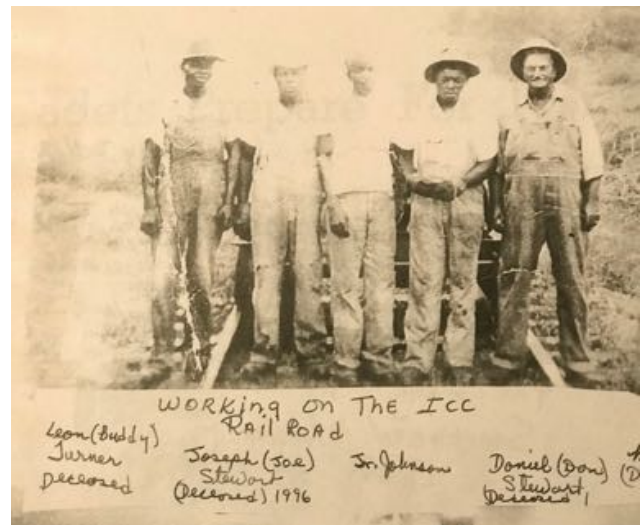 WORKing on The ICC
Rail ROAD
Leon (Buddy)
Turner
Deceased
Joseph (Joe)
Stewart
(Deceased) 1996
Jr. Johnson
Daniel (Dan)
Stewart
(Deceased)